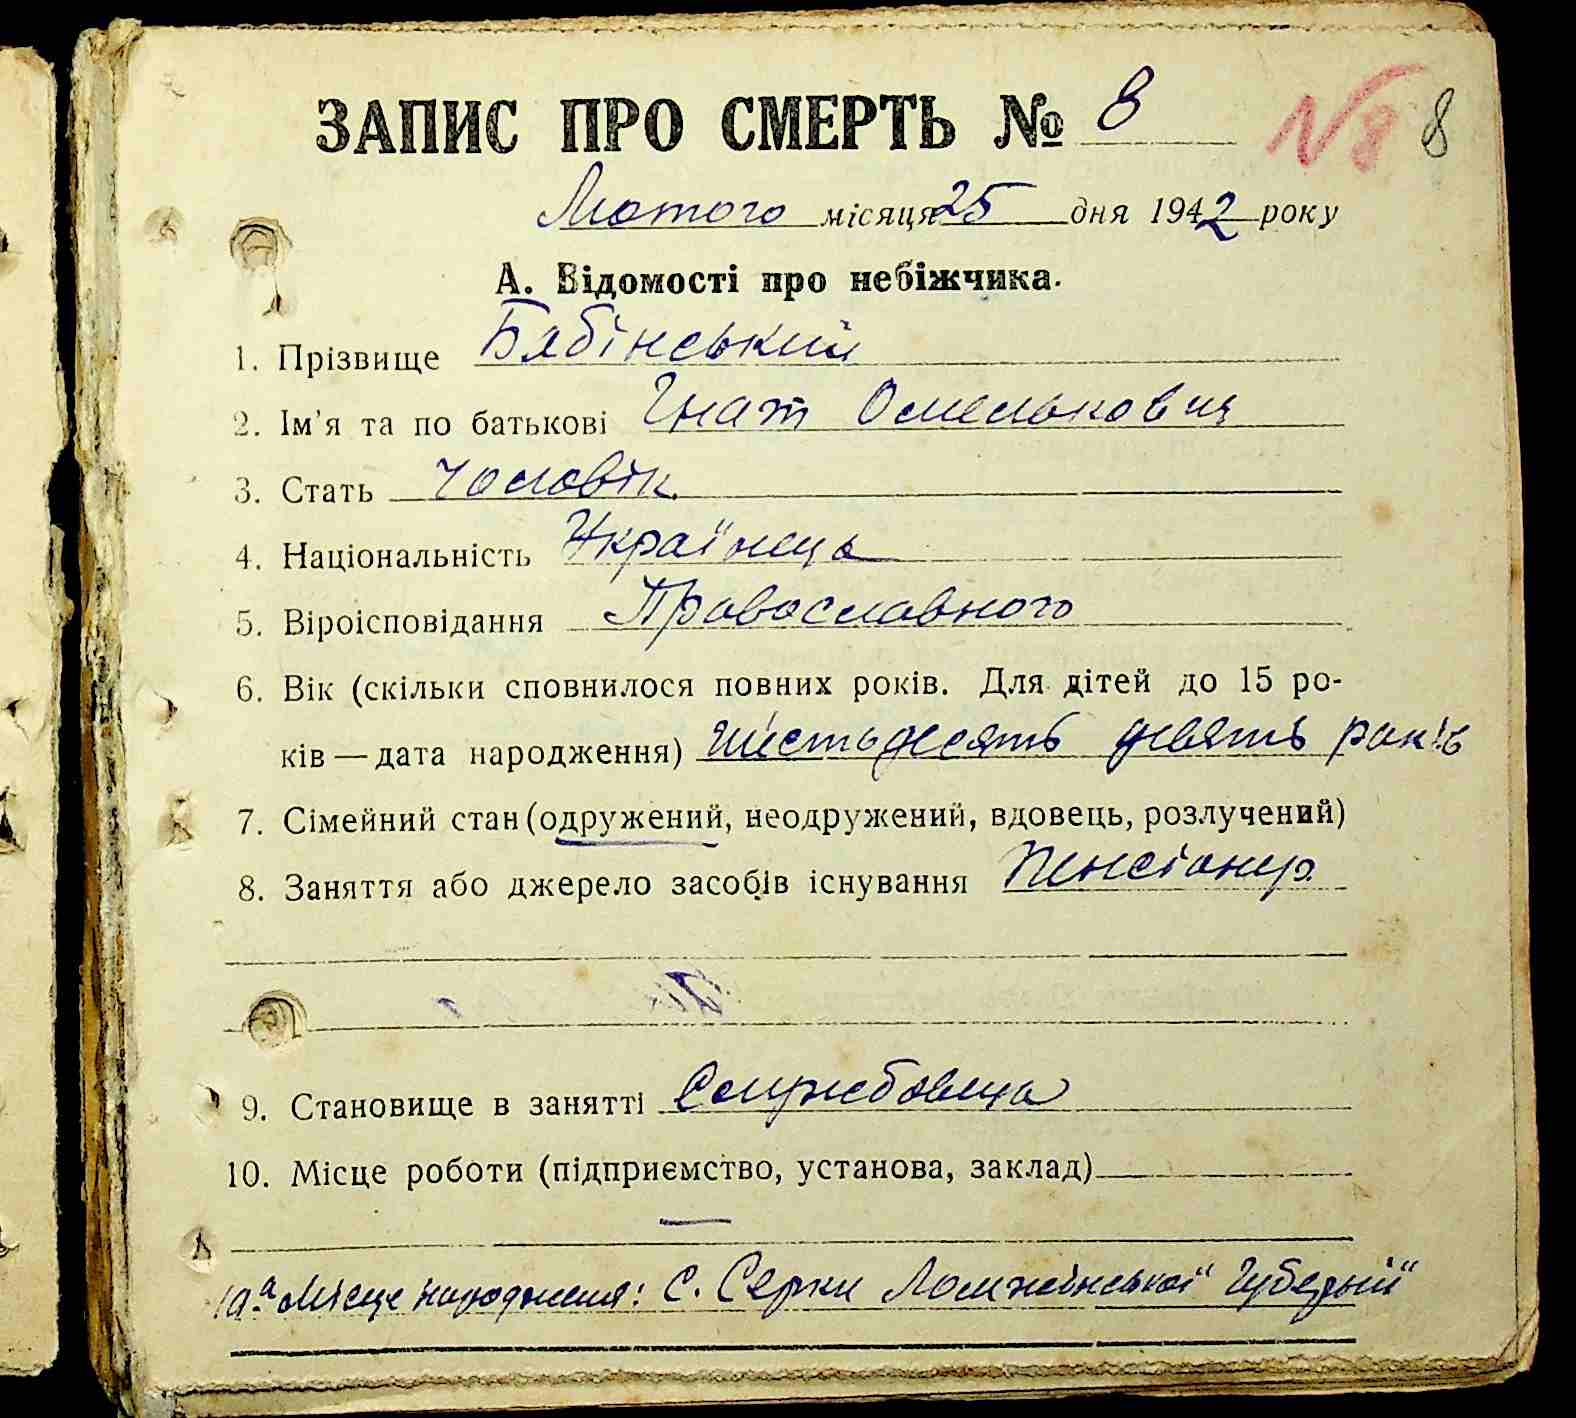 ЗАПИС ПРО СМЕРТЬ № 8 № 8 8
Лютого місяця 25 дня 1942 року
А. Відомості про небіжчика.
1. Прізвище Бябінський
2. Ім'я та по батькові Гнат Омелькович
3. Стать Чоловік
4. Національність Українець
5. Віроісповідання Православного
6. Вік (скільки сповнилося повних років. Для дітей до 15 ро-
ків — дата народження) шістьдесять девять років
7. Сімейний стан (одружений, неодружений, вдовець, розлучений)
8. Заняття або джерело засобів існування Пенсіонер
9. Становище в занятті Службовець
10. Місце роботи (підприємство, установа, заклад)
—
10а Місце народження: С. Серки Ломжинської Губернії